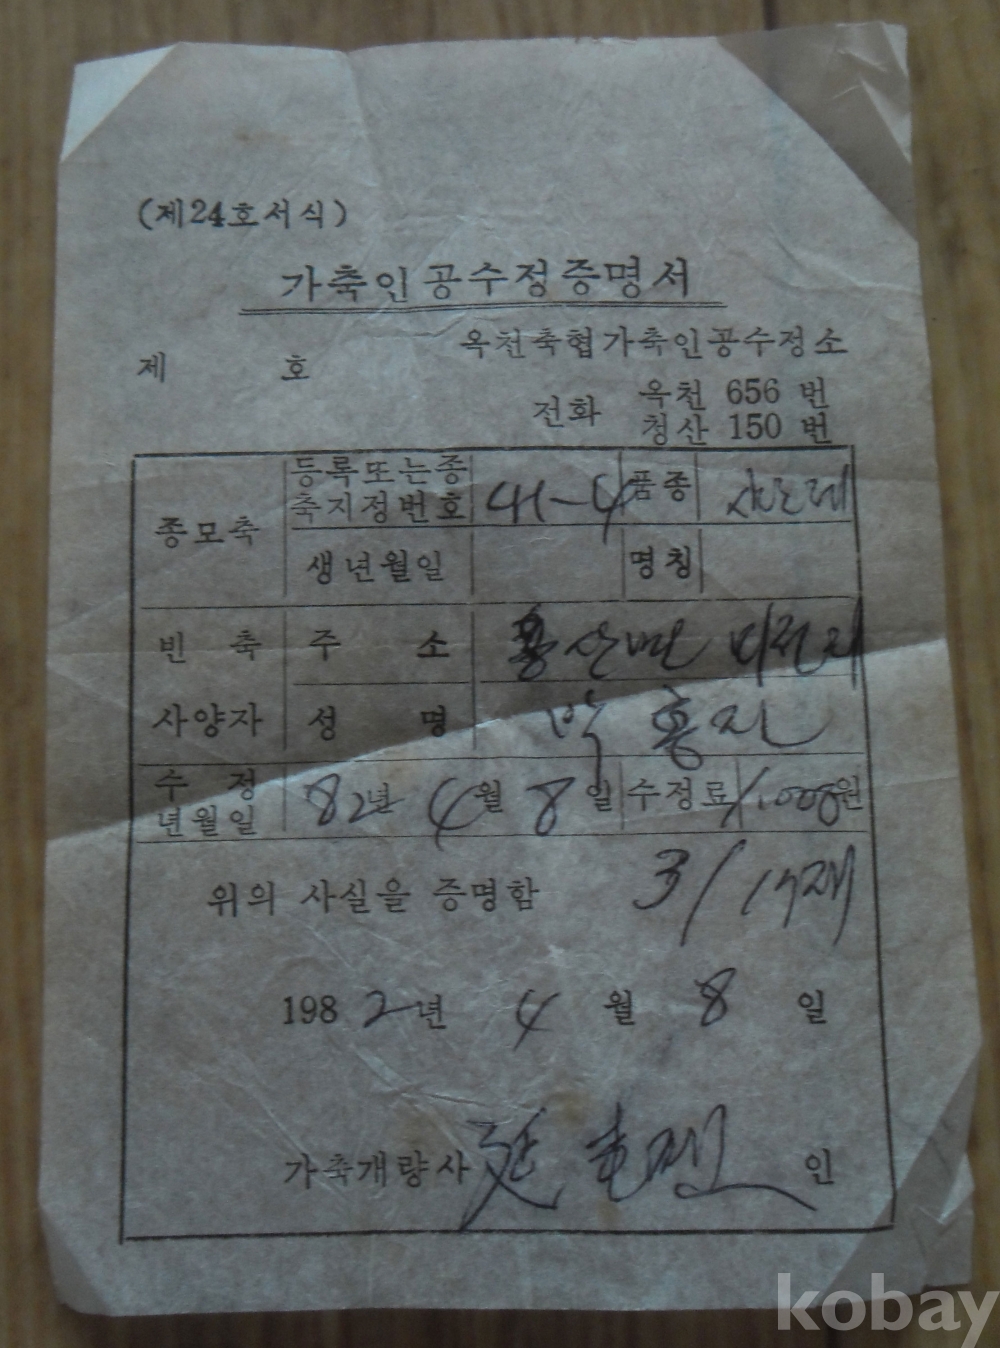 (제24호서식)
가축인공수정증명서
옥천축협가축인공수정소
제 호
전화 옥천 656 번
청산 150 번
종모축 등록또는종축지정번호 41-4 품종 샤로레
생년월일 명칭
빈축 주소 면 리
사양자 성명 박홍
수정년월일 82년 4월 8일 수정료 원
위의 사실을 증명함 3/
1982년 4월 8일
가축개량사 인
kobay